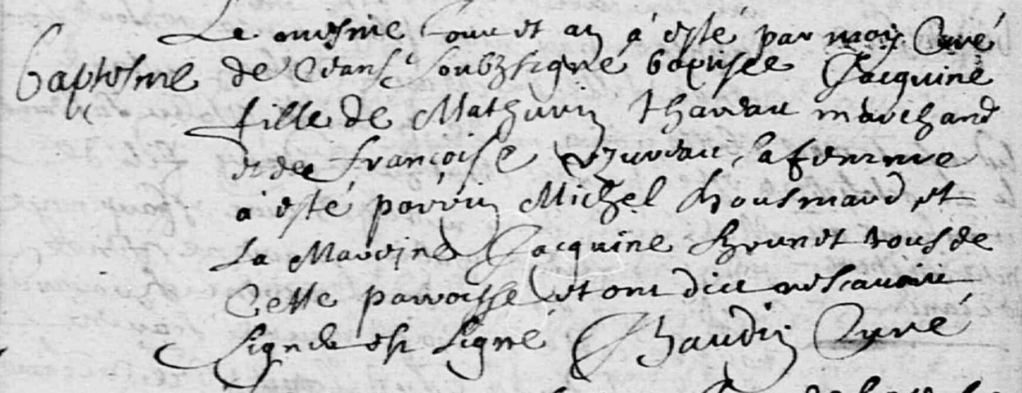 Le mesme Jour et an à esté par moy Curé
Baptesme de ceans soubzsigné baptisée Jacquine
fille de Mathurin Thareau marchand
et de françoise sa femme
à esté parrin Michel housmard et
La Mareine Jacquine Brunet tous de
Cette parroisse et ont dict ne scavoir
signé Baudin Curé